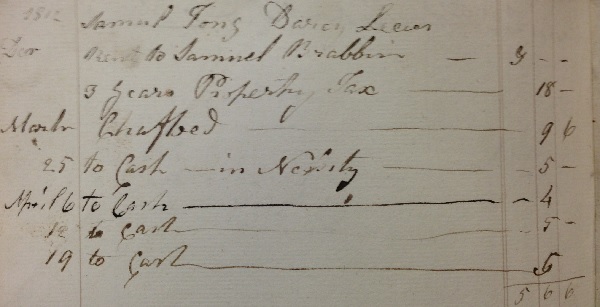 1812 Samul Tong Darcy Lever
Rent to Samuel Brabbin — 3 - -
3 Years Property Tax — 18 -
March Chaffbed — 9 6
25 to Cash — in — 5 -
April 6 to Cash — 4
12 to Cash — 5 -
19 to Cash — 5
5 6 6